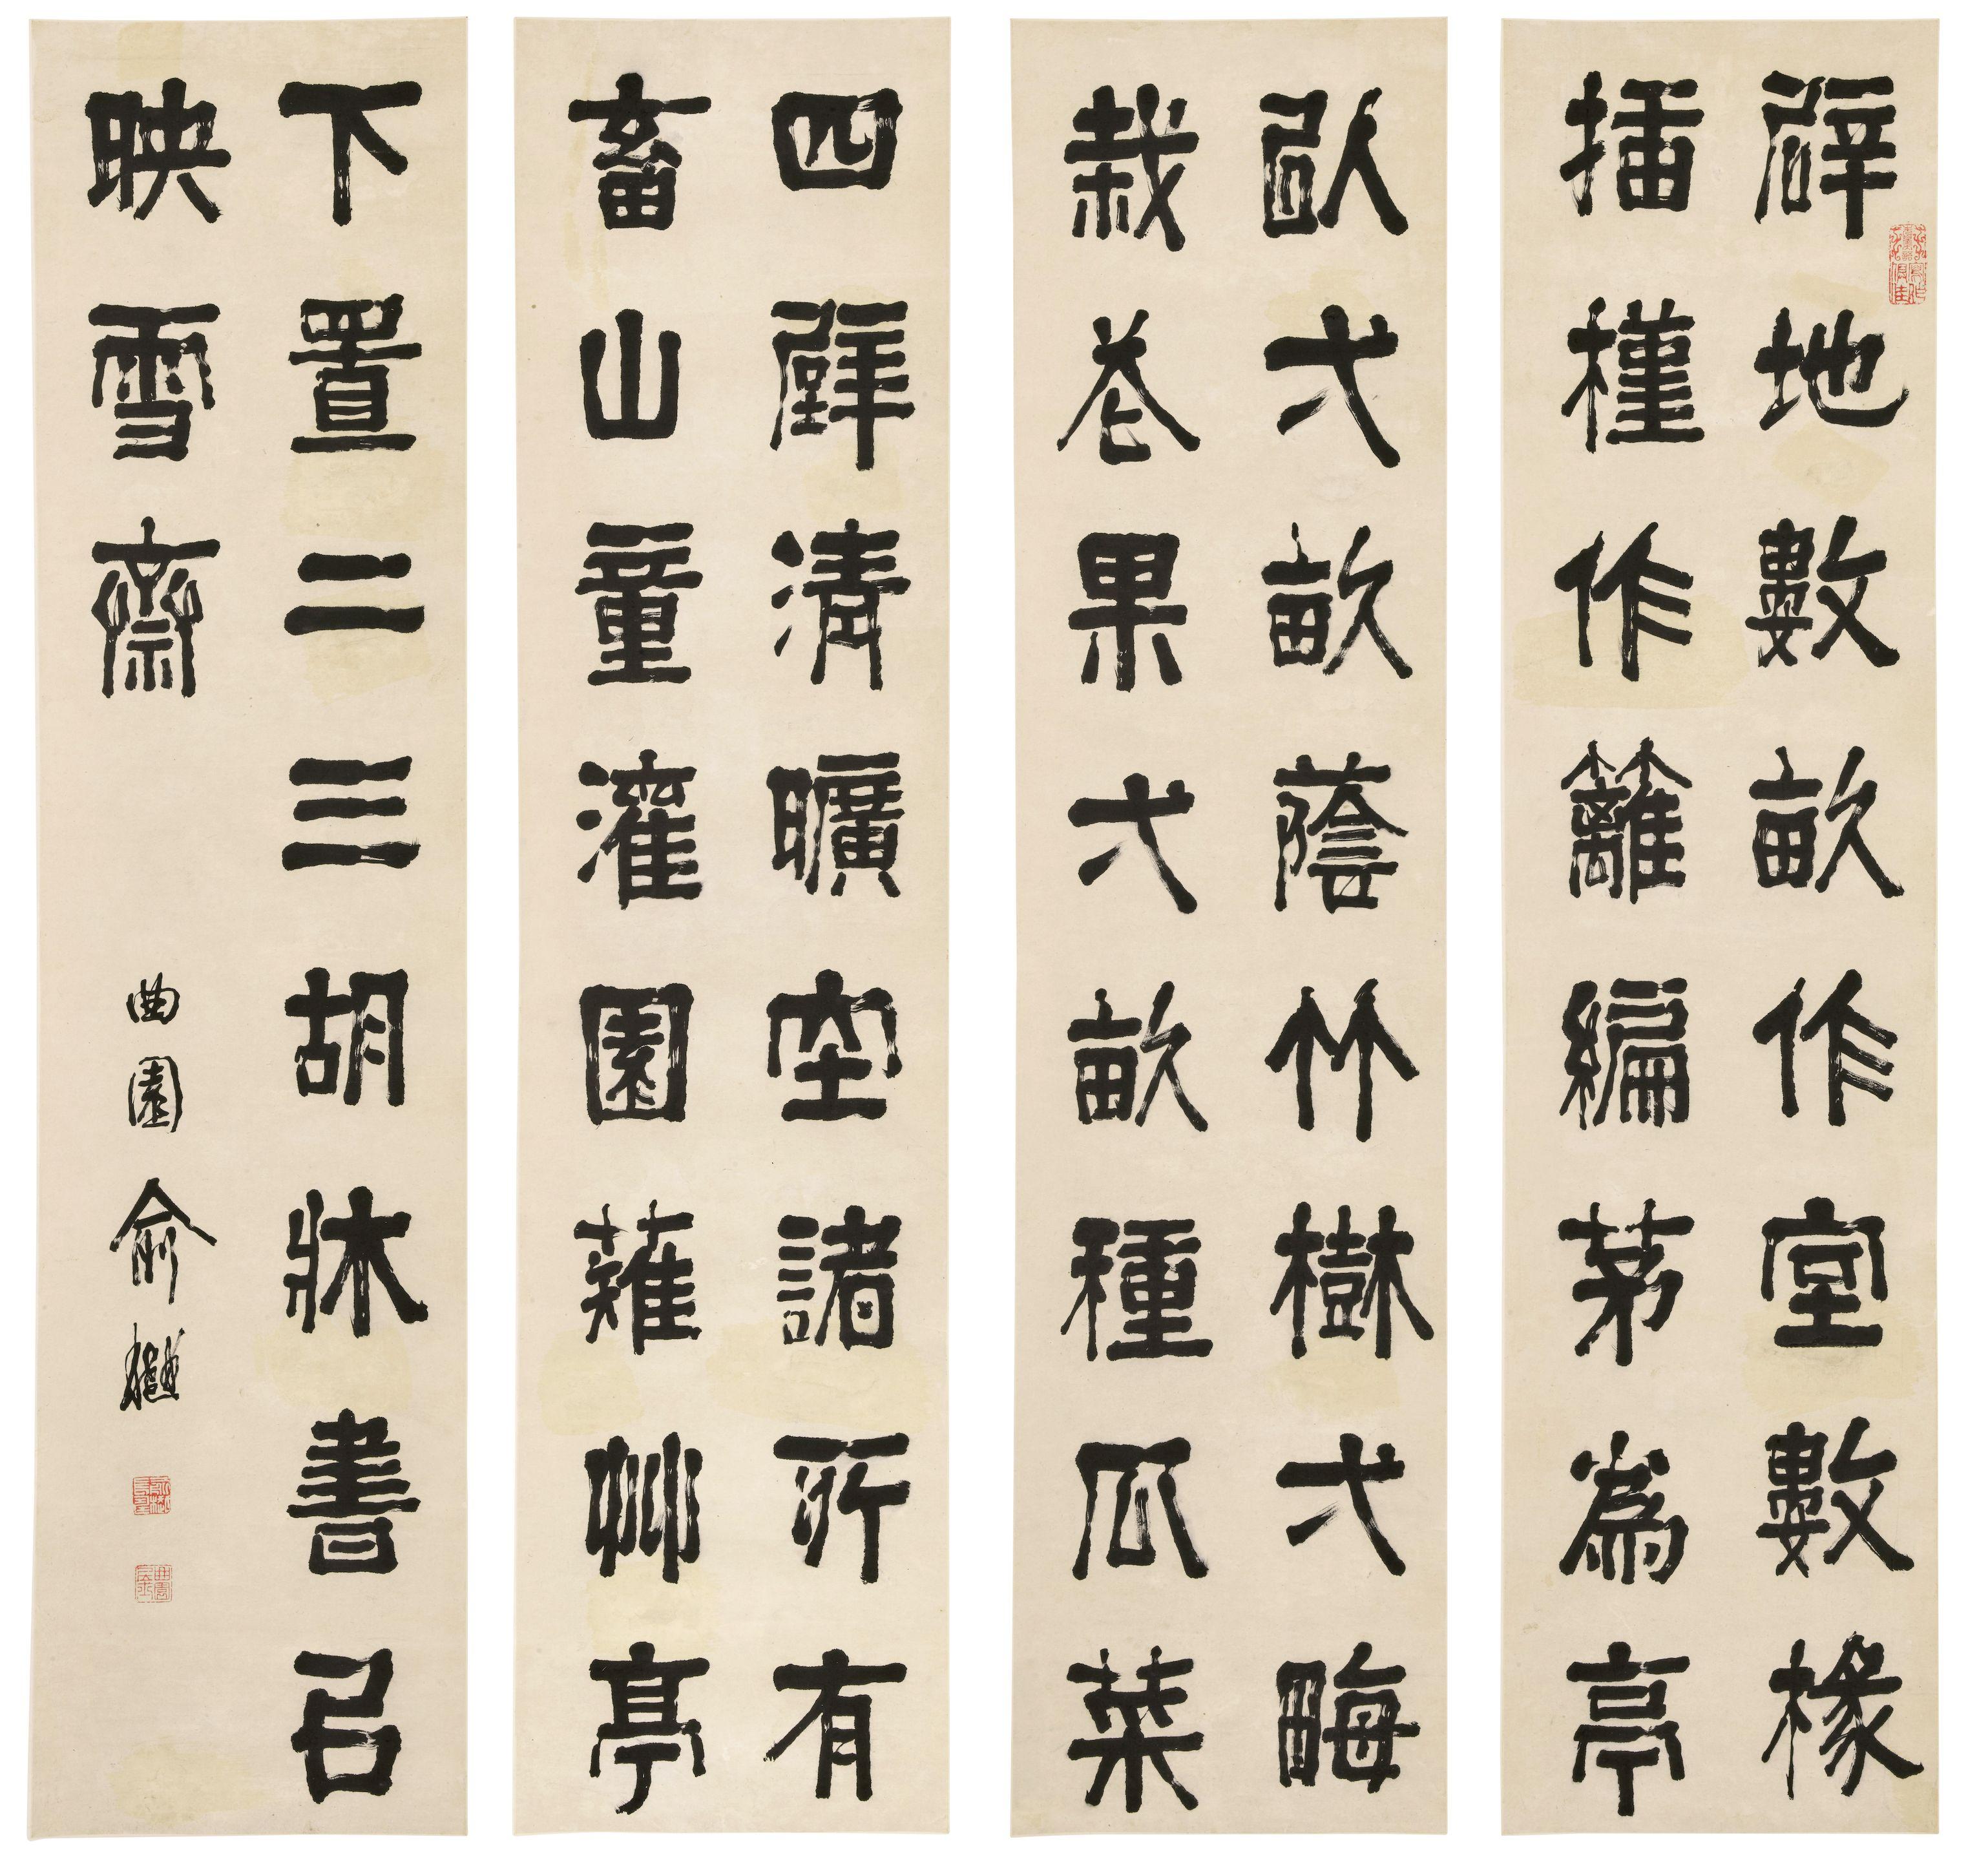 辟地數畝作室數椽
插槿作籬編茅爲亭
以弌畝蔭竹樹弌畮
栽花果弌畝種瓜菜
四壁清曠空諸所有
畜山童灌園薙艸亭
下置二三胡牀書召
映雪齋
曲園俞樾